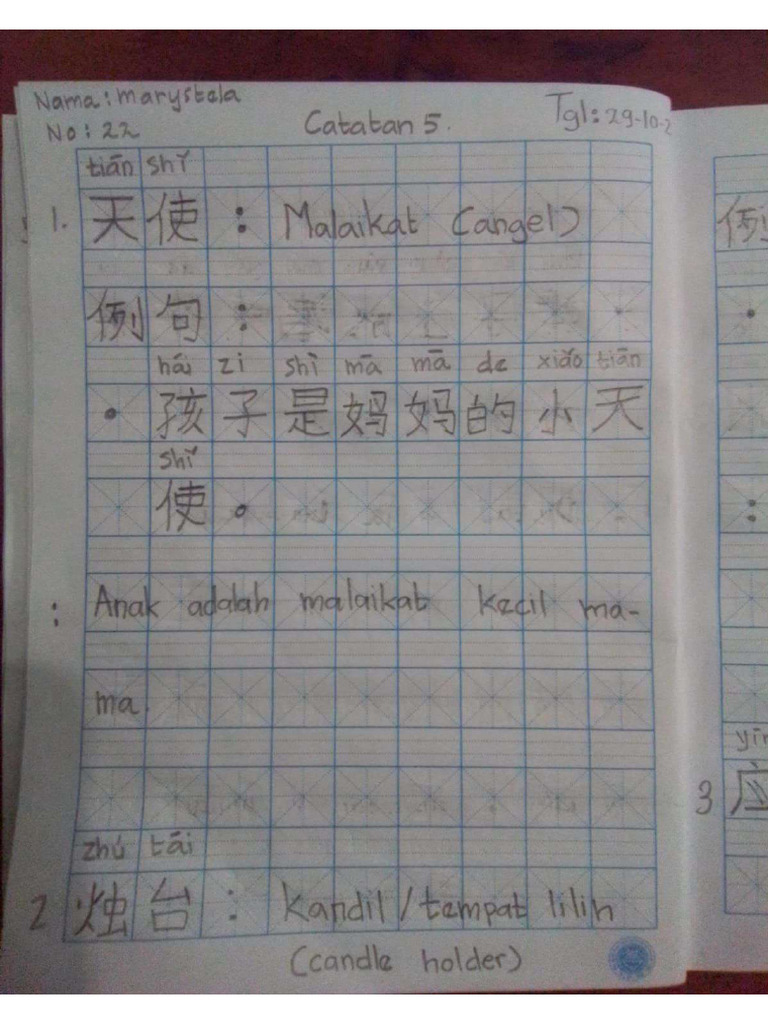 Nama: marystela
No: 22
Catatan 5.
Tgl: 29-10-2
tiān shǐ
1. 天使: Malaikat (angel)
例句:
hái zi shì mā mā de xiǎo tiān
• 孩子是妈妈的小天
shǐ
使。
: Anak adalah malaikat kecil ma-
ma.
zhú tāi
2 烛台: kandil / tempat lilin
(candle holder)
例
•
:
yīn
3 应